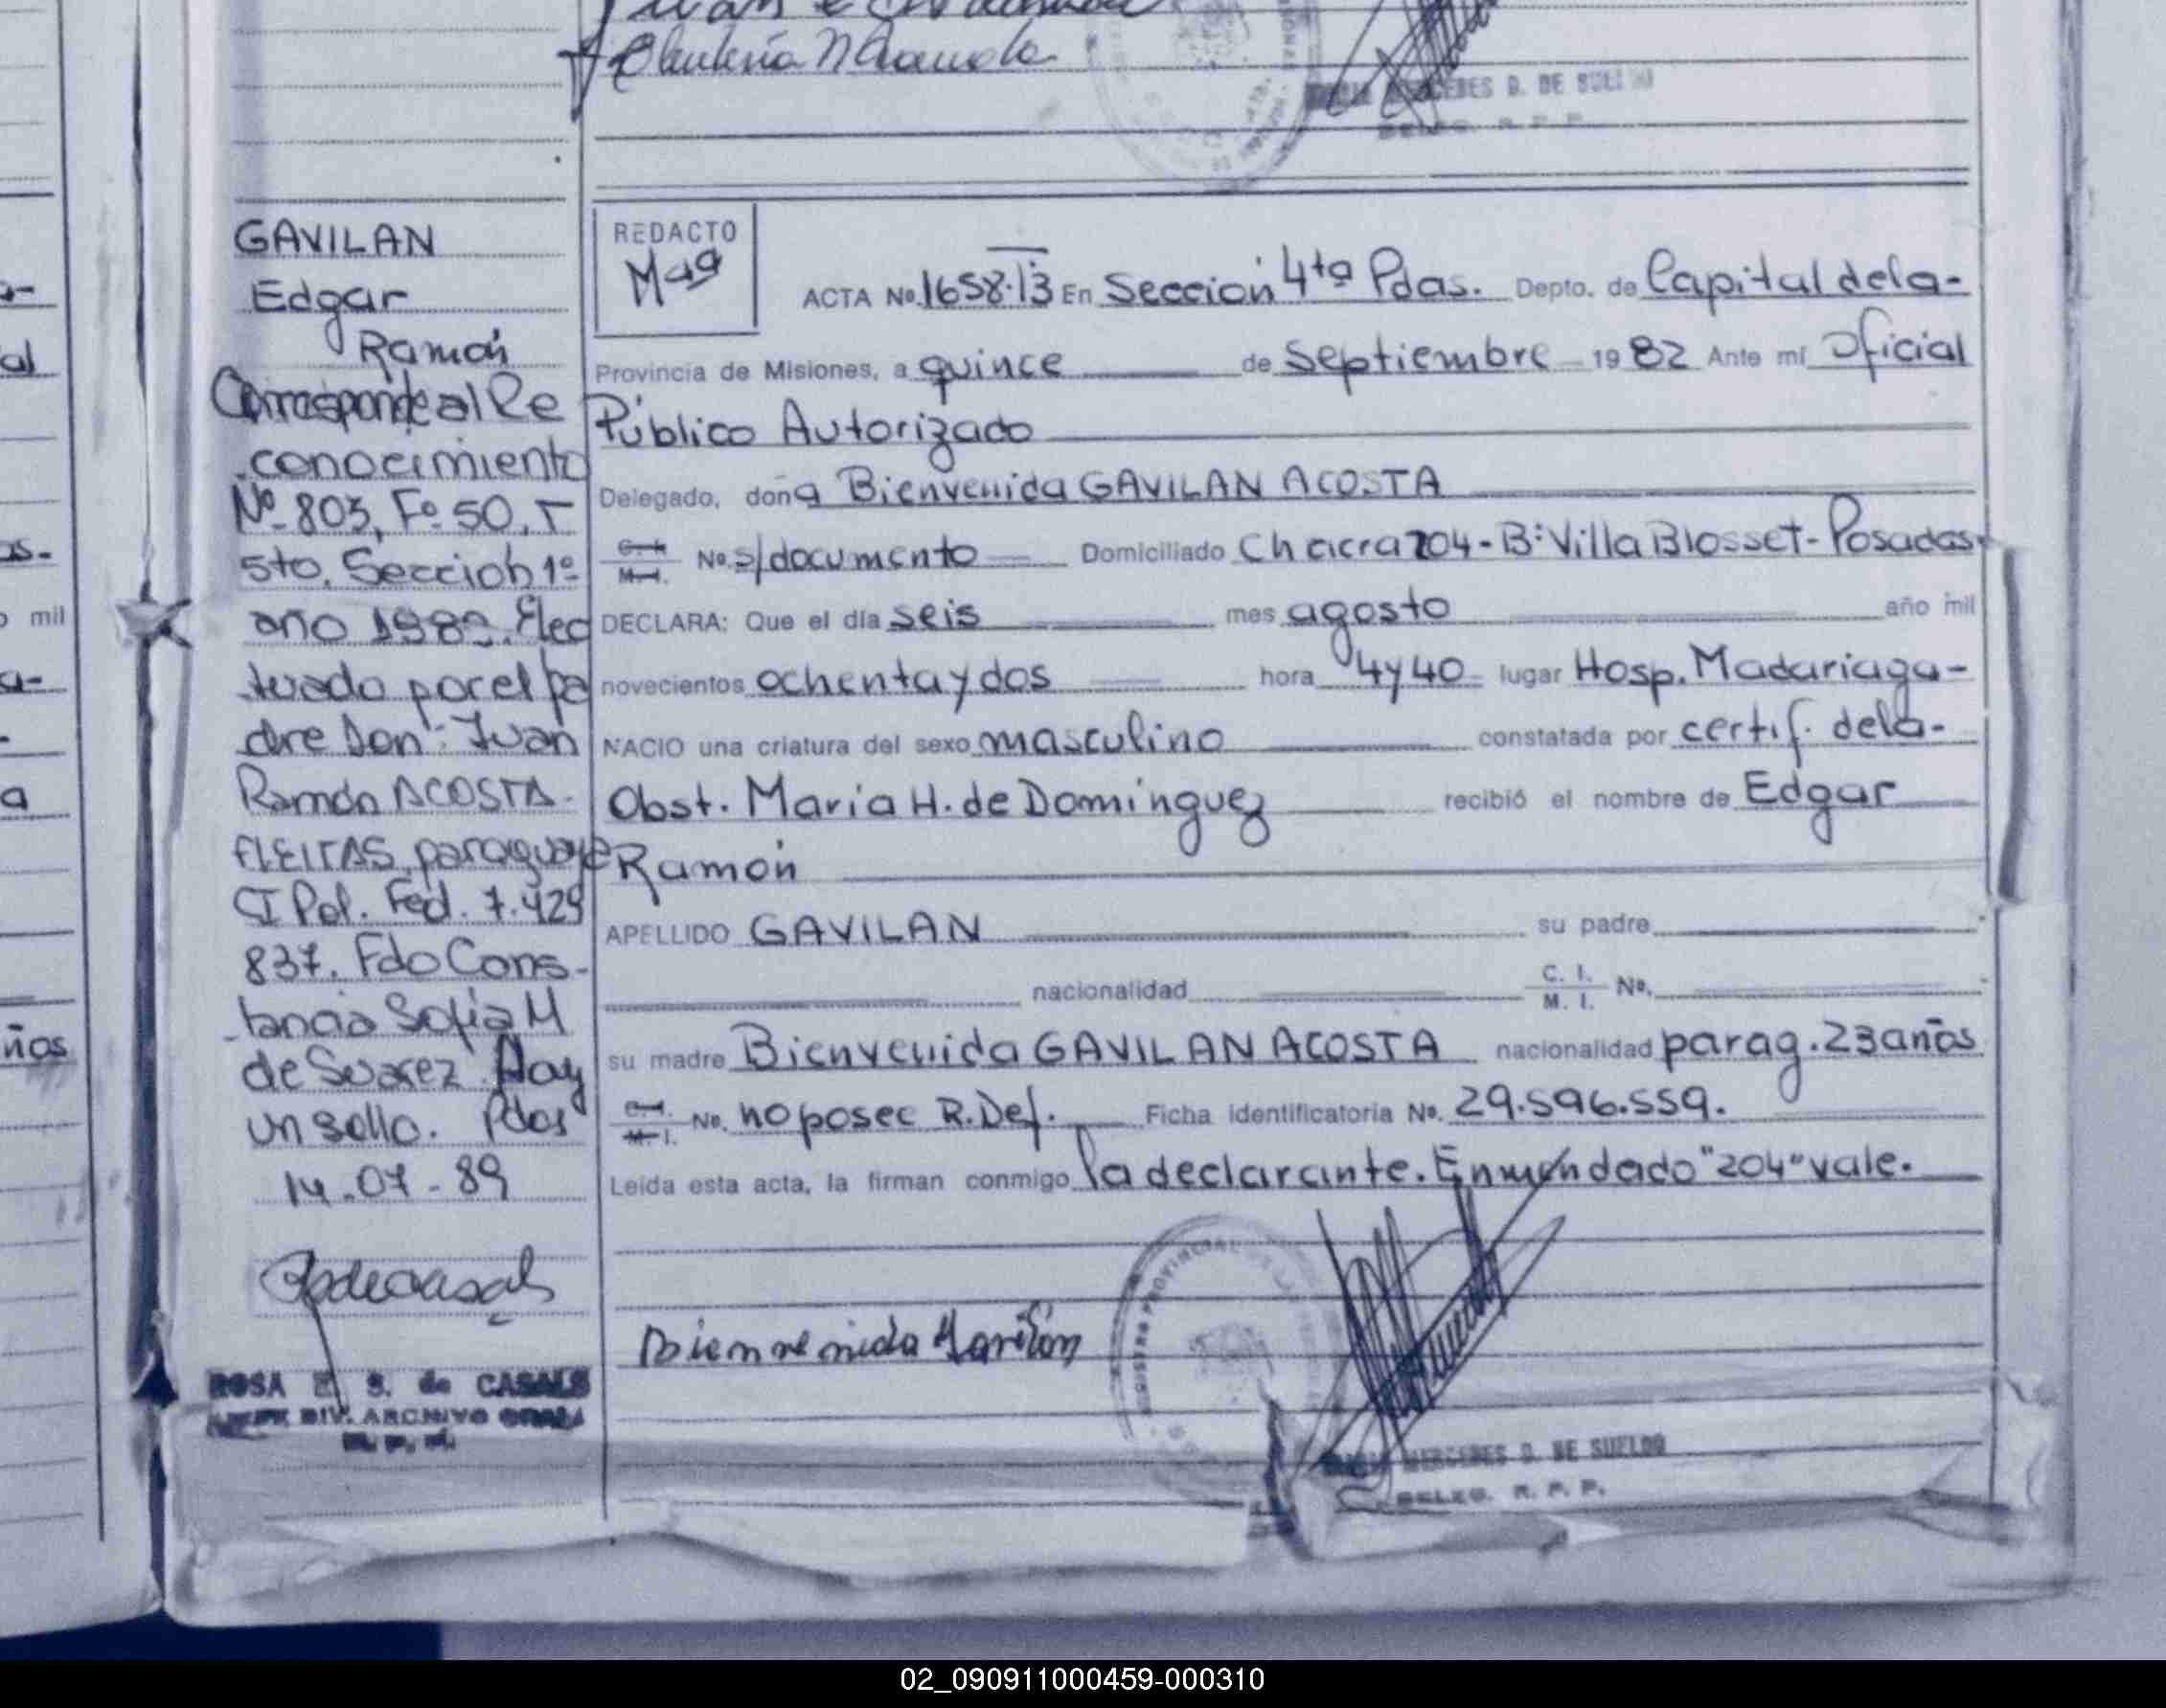 MERCEDES D. DE SUELDO
DELEG. R. P. P.
GAVILAN
Edgar
Ramón
Corresponde al Re
conocimiento
Nº 803, Fº 50, T
5to. Sección 1º
año 1989. Efec
tuado por el pa
dre Don: Juan
Ramón ACOSTA
FLEITAS, paraguayo
CI Pol. Fed. 7.429
837. Fdo Cons-
tancia Sofia M
de Suarez. Hay
un sello. Pdas
14-07-89
ROSA E. S. de CASALS
JEFE DIV. ARCHIVO GRAL.
R. P. P.
REDACTO
Mag
ACTA No. 1658-T3 En Sección 4ta Pdas. Depto. de Capital de la-
Provincia de Misiones, a quince de Septiembre 1982 Ante mí Oficial
Público Autorizado
Delegado, doña Bienvenida GAVILAN ACOSTA
C. I. M. I. No. s/documento Domiciliado Chacra 204-Bº Villa Blosset-Posadas.
DECLARA: Que el día seis mes agosto año mil
novecientos ochenta y dos hora 4 y 40 lugar Hosp. Madariaga-
NACIO una criatura del sexo masculino constatada por certif. de la-
Obst. María H. de Dominguez recibió el nombre de Edgar
Ramón
APELLIDO GAVILAN su padre
nacionalidad C. I. M. I. No.
su madre Bienvenida GAVILAN ACOSTA nacionalidad parag. 23 años
C. I. M. I. No. no posee R. Def. Ficha identificatoria No. 29.596.559.
Leída esta acta, la firman conmigo la declarante. Enmendado "204" vale.
Bienvenida Gavilán
MERCEDES D. DE SUELDO
DELEG. R. P. P.
02_090911000459-000310